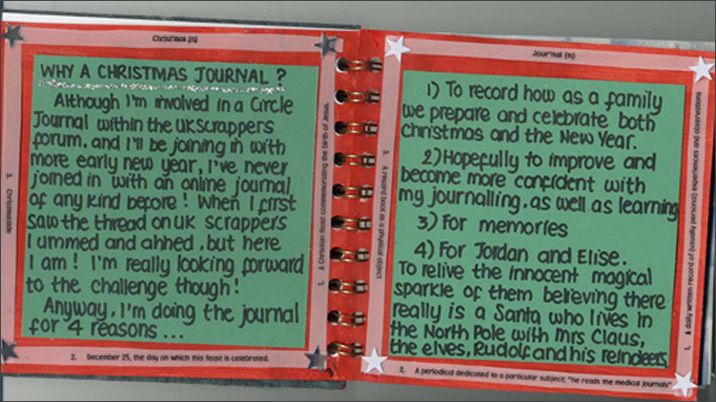 Christmas (n)
WHY A CHRISTMAS JOURNAL?
Although I'm involved in a Circle
Journal within the UKScrappers
forum, and I'll be joining in with
more early new year, I've never
joined in with an online journal
of any kind before! When I first
saw the thread on UK Scrappers
I ummed and ahhed, but here
I am! I'm really looking forward
to the challenge though!
Anyway, I'm doing the journal
for 4 reasons...
1. A Christian feast commemorating the birth of Jesus
2. December 25, the day on which this feast is celebrated.
3. Christmastide
Journal (n)
1) To record how as a family
we prepare and celebrate both
Christmas and the New Year.
2) Hopefully to improve and
become more confident with
my journalling, as well as learning
3) For memories
4) For Jordan and Elise.
To relive the innocent magical
sparkle of them believing there
really is a Santa who lives in
the North Pole with Mrs Claus,
the elves, Rudolf and his reindeers
1. A daily written record of (usually personal) experiences and observations
2. A periodical dedicated to a particular subject; "he reads the medical journals"
3. A record book as a physical object